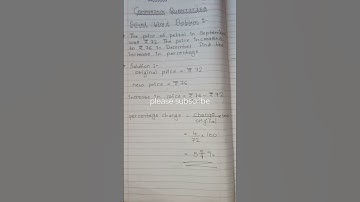 Comparing Quantities
Solved Word Problem :-
The price of petrol in September
was ₹ 72. The price increased
to ₹ 76 in December. Find the
increase in percentage.
Solution :-
original price = ₹ 72
new price = ₹ 76
Increase in price = ₹ 76 - ₹ 72
please subscribe
percentage change = change × 100
original
= 4 × 100
72
= 5 5/9 %